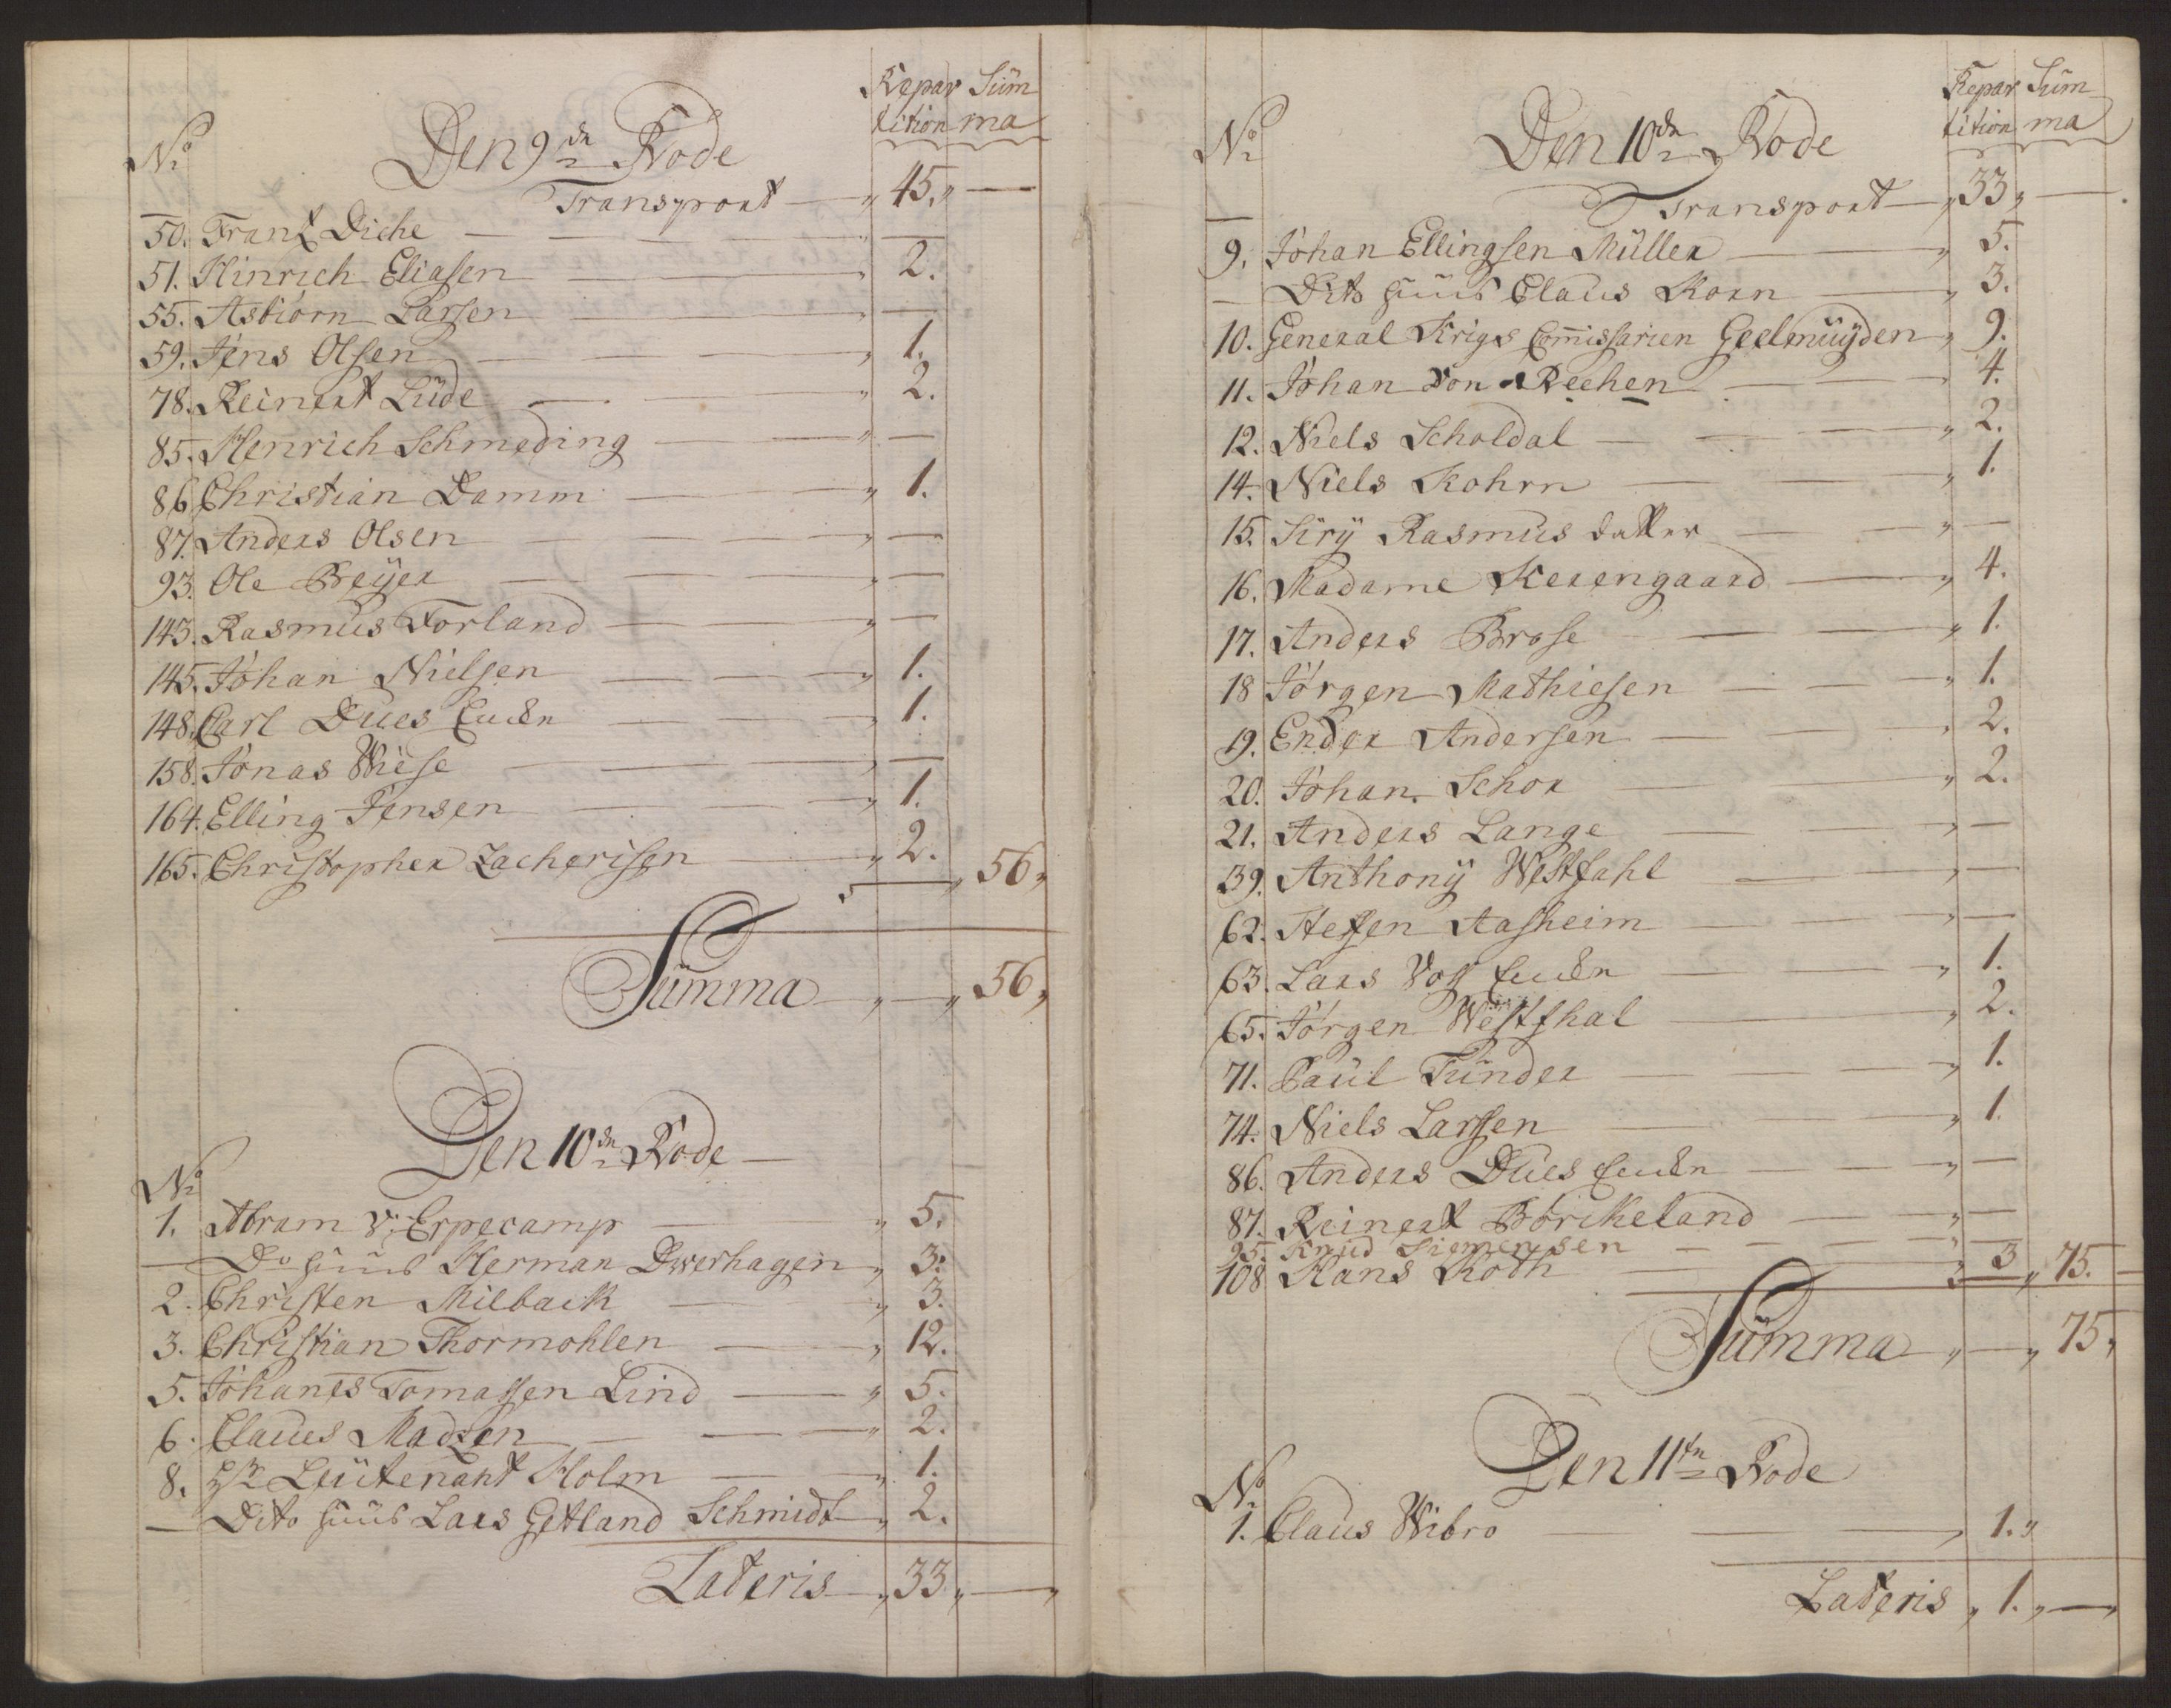 No
Den 9de Rode
Repar Sum
tition ma
Transport — 45. —
50. Frantz Diche — —
51. Hinrich Eliasen — 2.
55. Asbiörn Larsen — —
59. Jens Olsen — 1.
78. Reinert Lüde — 2.
85. Henrich Schmeding — —
86. Christian Damm — 1.
87. Anders Olsen — —
93. Ole Beyer — —
143. Rasmus Forland — —
145. Johan Nielsen — 1.
148. Carl Dues Encke — 1.
158. Jonas Wiese — —
164. Elling Jensen — 1.
165. Christopher Zacherisen — 2.
— 56
Summa — 56
Den 10de Rode
No
1. Abram v. Erpecamp — 5.
— Do huus Herman Dwerhagen 3.
2. Christen Milbach — 3.
3. Christian Thormohlen — 12.
5. Johanes Tomassen Lind — 5.
6. Claues Madzen — 2.
8. Hr Leutenant Holm — 1.
— Dito huus Lars Getland Schmidt 2.
Lateris 33 —
No
Den 10de Rode
Repar Sum
tition ma
Transport — 33 —
9. Johan Ellingsen Müller — 5.
— Dito huus Claus Korn — 3.
10. General Krigs Commissarien Geelmuyden 9.
11. Johan von Rechen — 4.
12. Niels Scholdal — 2.
14. Niels Kohrn — 1.
15. Siry Rasmus datter — —
16. Madame Kerengaard — 4.
17. Anders Brose — 1.
18 Jörgen Mathiesen — 1.
19. Ender Andersen — 2.
20. Johan Schor — 2.
21. Anders Lange — —
39. Anthony Westfahl — —
62. Steffen Aasheim — —
63. Lars Voss Encke — 1.
65. Jörgen Westfhal — 2.
71. Paul Tünder — 1.
74. Niels Larssen — 1.
86. Anders Dues Encke — —
87. Reinert Börckeland — —
95. Knud Siemensen — —
108 Hans Roth — 3 75.
Summa — 75
Den 11te Rode
No
1. Claus Wibro — 1.
Lateris 1. —